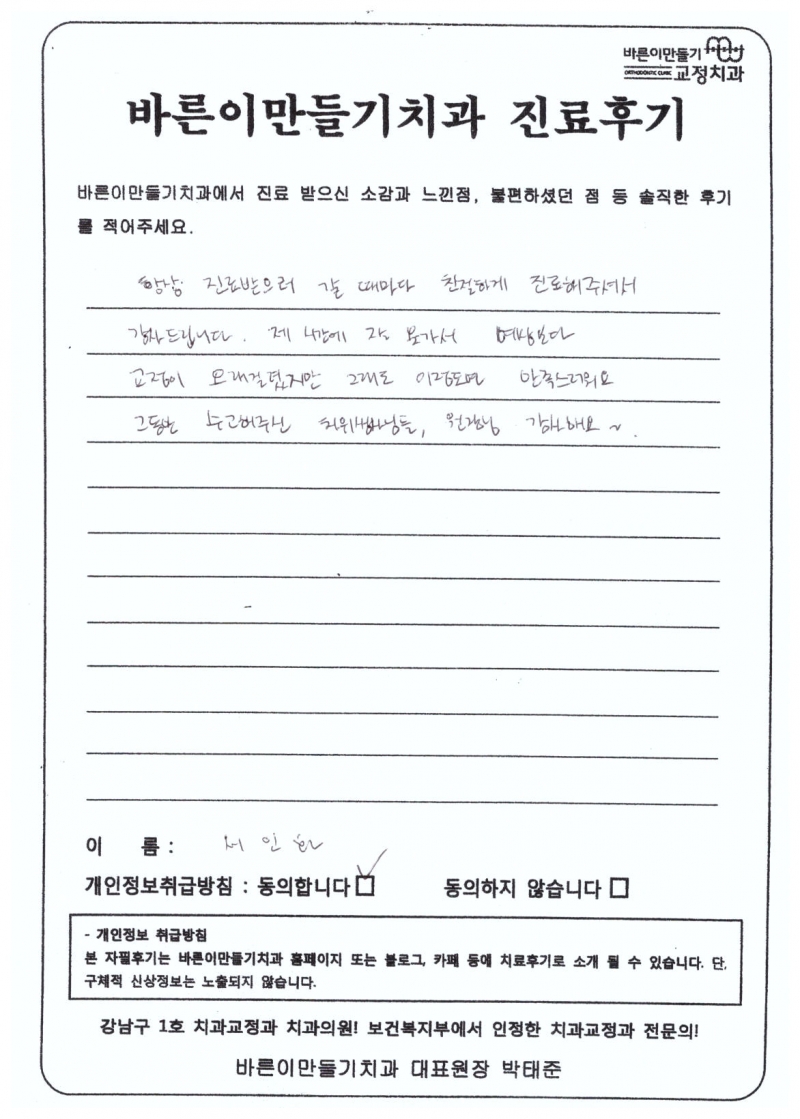 바른이만들기
ORTHODONTIC CLINIC 교정치과
바른이만들기치과 진료후기
바른이만들기치과에서 진료 받으신 소감과 느낀점, 불편하셨던 점 등 솔직한 후기
를 적어주세요.
항상 진료받으러 갈 때마다 친절하게 진료해주셔서
감사드립니다. 제 시간에 잘 못가서 예상보다
교정이 오래걸렸지만 그래도 이정도면 만족스러워요
그동안 수고해주신 치위생사님들, 원장님 감사해요~.
이 름 : 서인화
개인정보취급방침 : 동의합니다 동의하지 않습니다
- 개인정보 취급방침
본 자필후기는 바른이만들기치과 홈페이지 또는 블로그, 카페 등에 치료후기로 소개 될 수 있습니다. 단,
구체적 신상정보는 노출되지 않습니다.
강남구 1호 치과교정과 치과의원! 보건복지부에서 인정한 치과교정과 전문의!
바른이만들기치과 대표원장 박태준